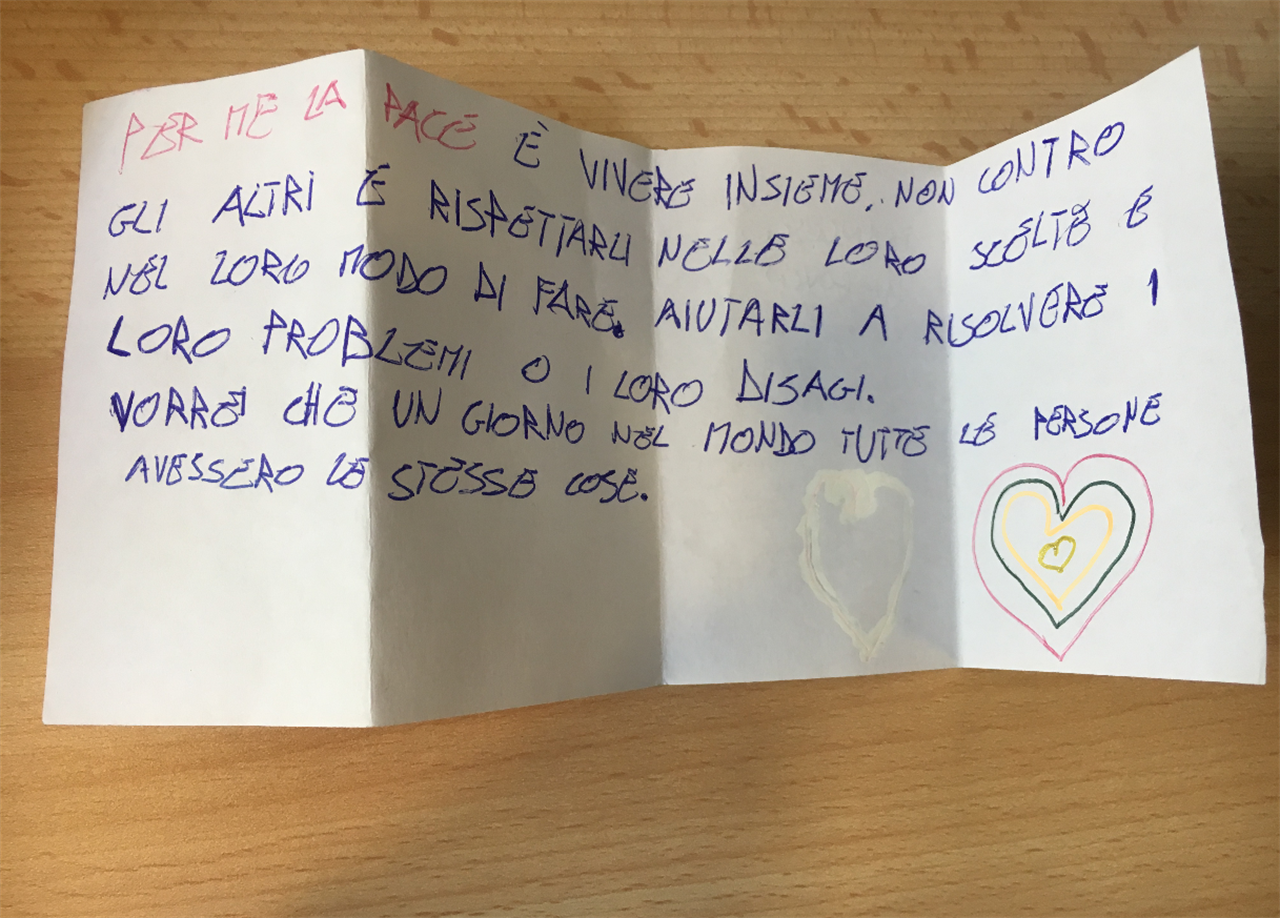 PER ME LA PACE È VIVERE INSIEME, NON CONTRO
GLI ALTRI E RISPETTARLI NELLE LORO SCELTE E
NEL LORO MODO DI FARE. AIUTARLI A RISOLVERE I
LORO PROBLEMI O I LORO DISAGI.
VORREI CHE UN GIORNO NEL MONDO TUTTE LE PERSONE
AVESSERO LE STESSE COSE.